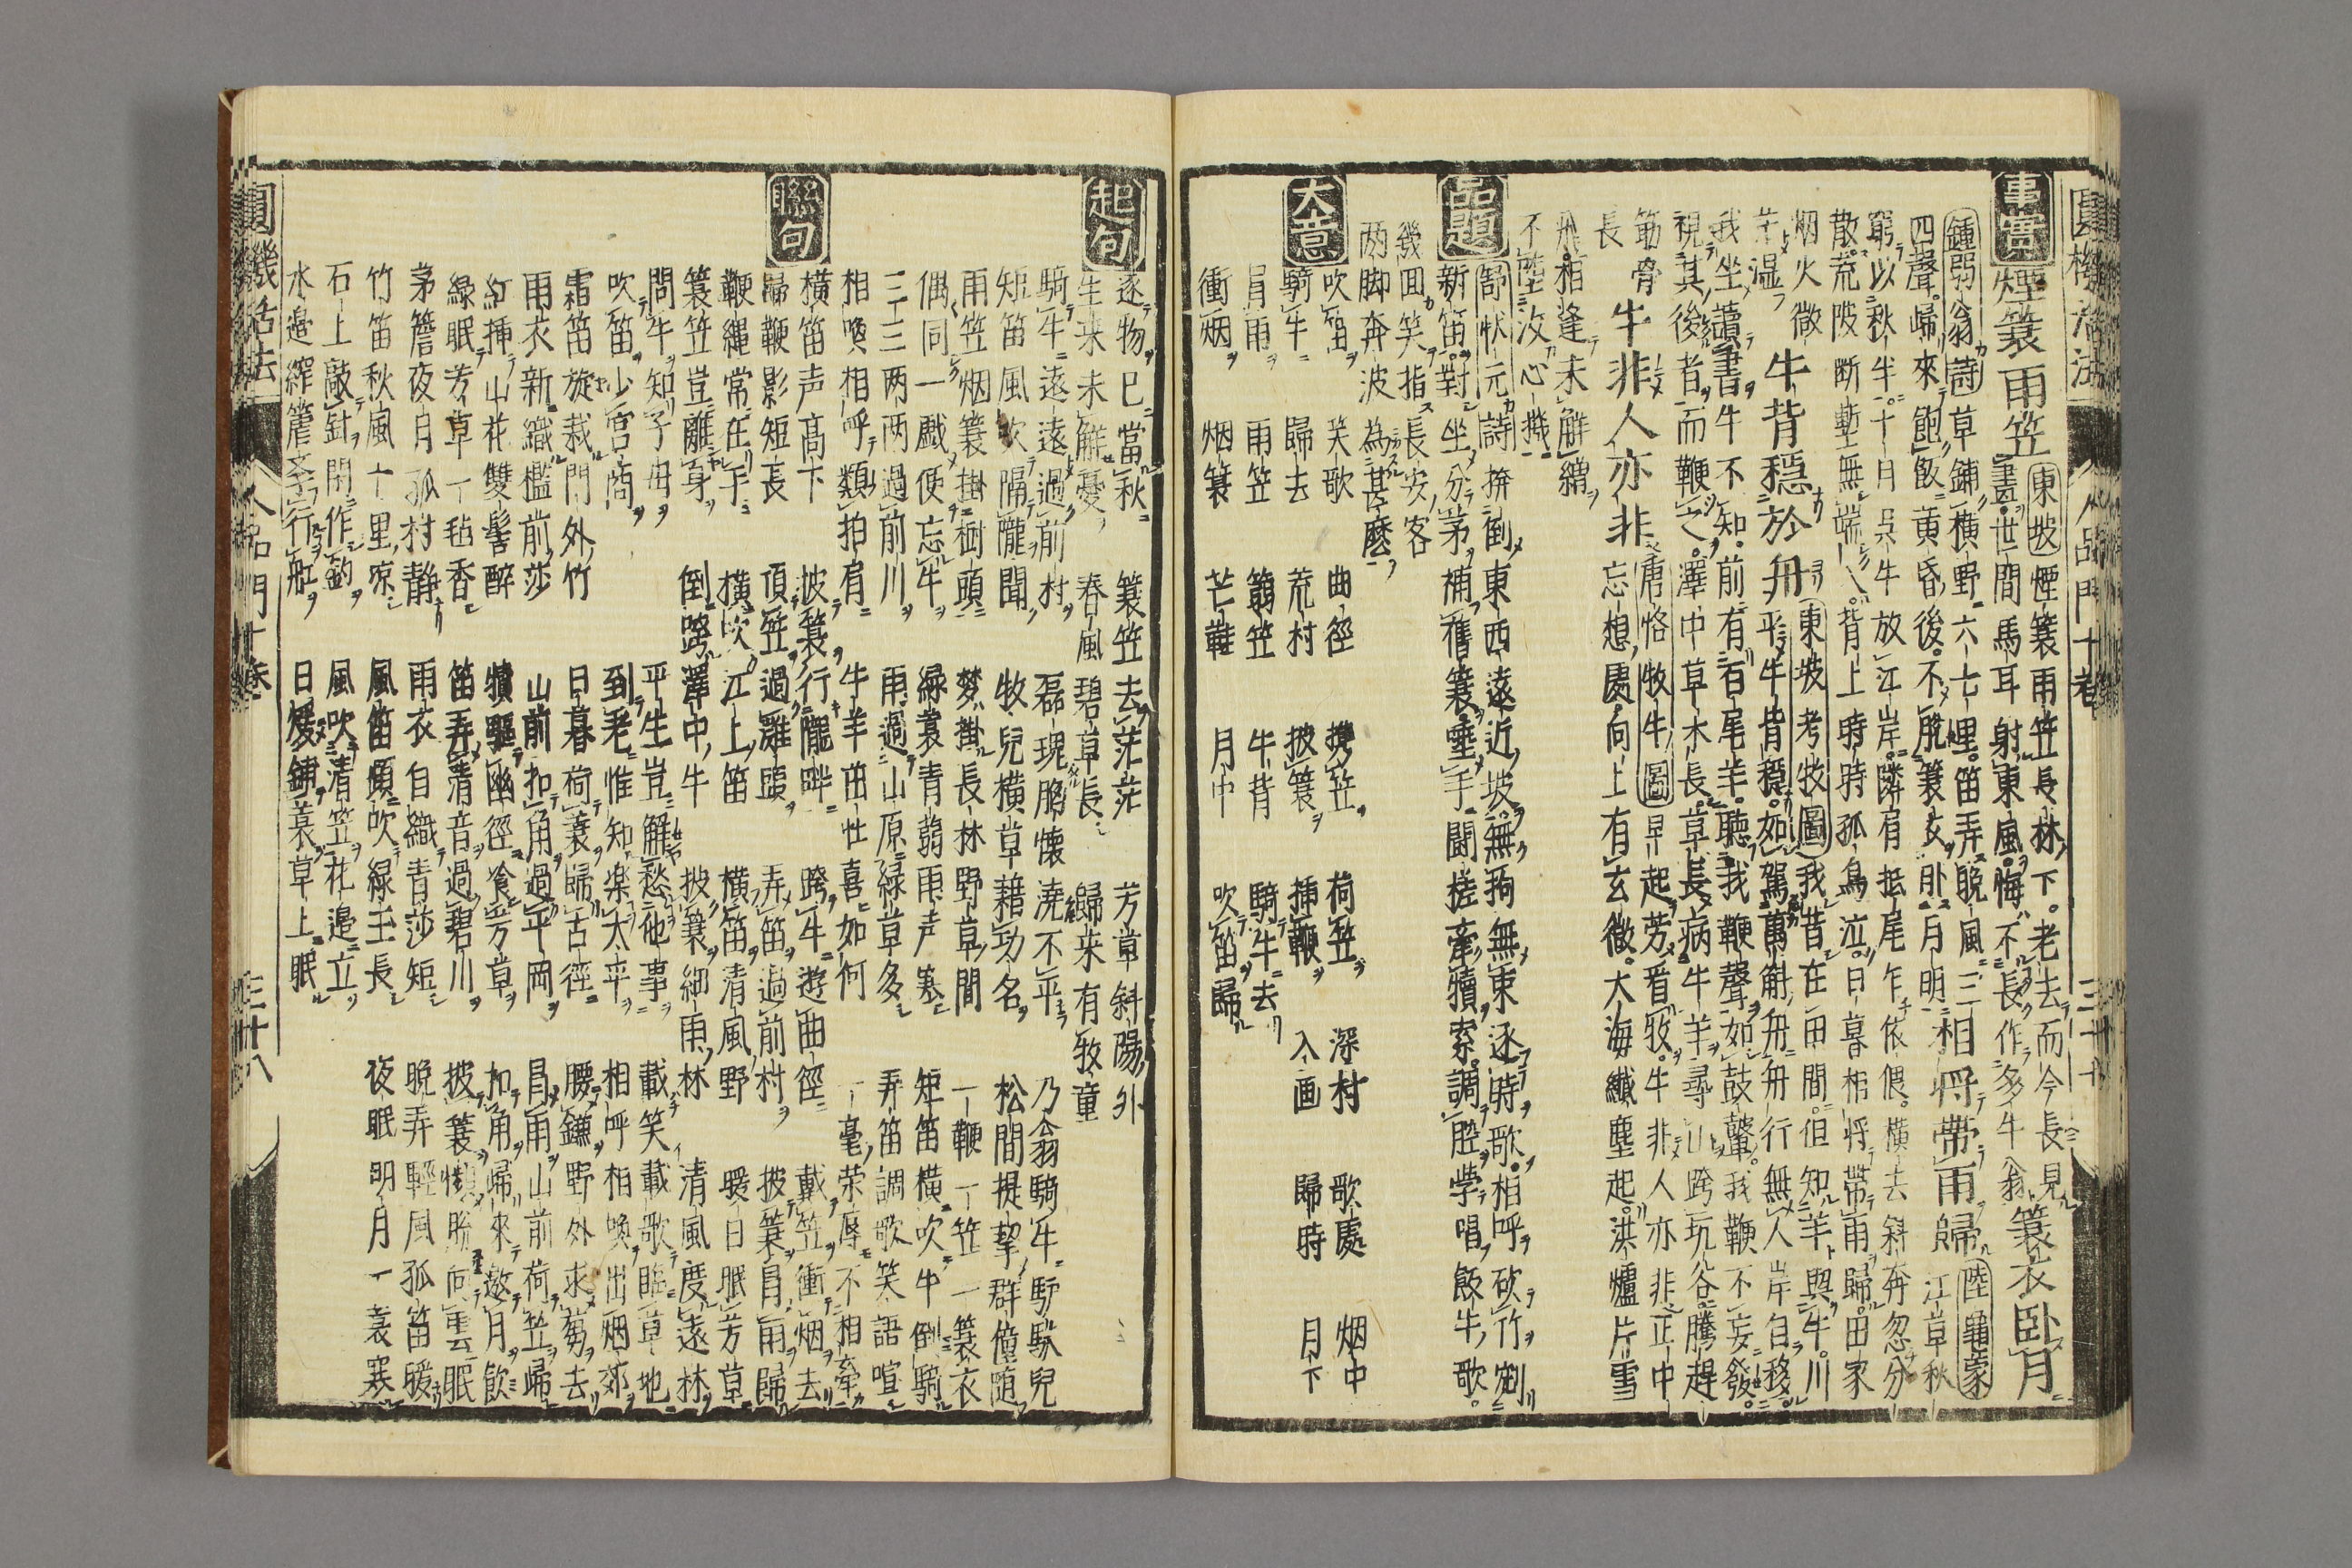 圓機活法 人品門十卷 三十七
事實 煙簑雨笠 東坡 煙簑雨笠長林下。老去而今長見
畫。世間馬耳射東風。悔不長作多牛翁 簑衣臥月
鍾弱翁詩 草鋪橫野六七里。笛弄晚風三
四聲。歸來飽飯黃昏後。不脫簑衣臥月明 相將帶雨歸 陸龜蒙 江草秋
窮以秋半。十月吳牛放江岸。隣肩抵尾乍依偎。橫去斜奔忽分
散。荒陂斷塹無端入。背上時時孤鳥泣。日暮相將帶雨歸。田家
烟火微
茫濕 牛背穩於舟 東坡考牧圖 我昔在田間。但知羊與牛。川
平牛背穩。如駕萬斛舟。舟行無人岸自移。
我坐讀書牛不知。前有百尾羊。聽我鞭聲如鼓鼙。我鞭不妄發。
視其後者而鞭之。澤中草木長。草長病牛羊。尋山跨坑谷。騰趠
筋骨
長 牛非人亦非 唐恪牧牛圖 早起芳春牧。牛非人亦非。正中
忘想處。向上有玄微。大海纖塵起。洪爐片雪
飛。相逢未解纘
不陸汝心機
品題 舒狀元詩 拚倒東西遠近坡。無拘無束逐時歌。相呼砍竹劉
新笛。對坐分茅補舊簑。垂手鬪搓牽犢索。調腔學唱飯牛歌。
幾回笑指長安客
兩脚奔波為甚麼
大意 吹笛 笑歌 曲徑 携笠 荷笠 深村 歌處 烟中
騎牛 歸去 荒村 披簑 插鞭 入画 歸時 月下
冒雨 雨笠 蒻笠 牛背 騎牛去
衝烟 烟簑 芒鞋 月中 吹笛歸
起句 逐物已當秋 簑笠去茫茫 芳草斜陽外
生来未解憂 春風碧草長 歸来有牧童
騎牛遠遠過前村 磊瑰胸懷澆不平 乃翁騎牛馿馱兒
短笛風吹隔隴聞 牧兒橫草藉功名 松間提挈群僮随
雨笠烟簑掛樹頭 梦掛長林野草間 一鞭一笠一簑衣
偶同一戲便忘牛 綠簑青蒻雨声寒 短笛橫吹牛倒騎
三三两两過前川 雨過山原綠草多 弄笛調歌笑語喧
相喚相呼類拍肩 牛羊茁壮喜如何 一毫荣辱不相牽
聯句 橫笛声高下 披簑行隴畔 跨牛遊曲徑 戴笠衝烟去
歸鞭影短長 頂笠過籬蹟 弄笛過前村 披簑冒雨歸
鞭繩常在手 橫吹江上笛 橫笛清風野 暖日眠芳草
簑笠豈離身 倒跨澤中牛 披簑細雨林 清風度遠林
問牛知子母 平生豈解愁他事 載笑載歌眠草地
吹笛少宮商 到老惟知楽太平 相呼相喚出烟郊
霜笛旋裁門外竹 日暮荷簑歸古徑 腰鎌野外求蒭去
雨衣新織檻前莎 山前扣角過平岡 冒雨山前荷笠歸
紅挿山花雙髻醉 犢驅幽徑食芳草 扣角歸來邀月飲
綠眠芳草一毡香 笛弄清音過碧川 披簑懶脫向雲眠
茅簷夜月孤村靜 雨衣自織青莎短 晚弄輕風孤笛暖
竹笛秋風十里凉 風笛頻吹綠玉長 夜眠明月一簑寒
石上敲針閑作釣 風吹清笠花邊立
水邊縡簷季行舡 日煖鋪簑草上眠
圓機活法 人品門十卷 三十八